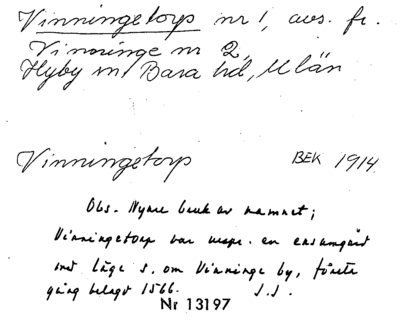 Vinningetorp nr 1, avs. fr.
Vinninge nr 2,
Hyby sn Bara hd, M län
Vinningetorp BEK 1914
Obs. Nyare bruk av namnet;
Vinningetorp var urspr. en ensamgård
med läge s. om Vinninge by, första
gång belagd 1566. S.J.
Nr 13197